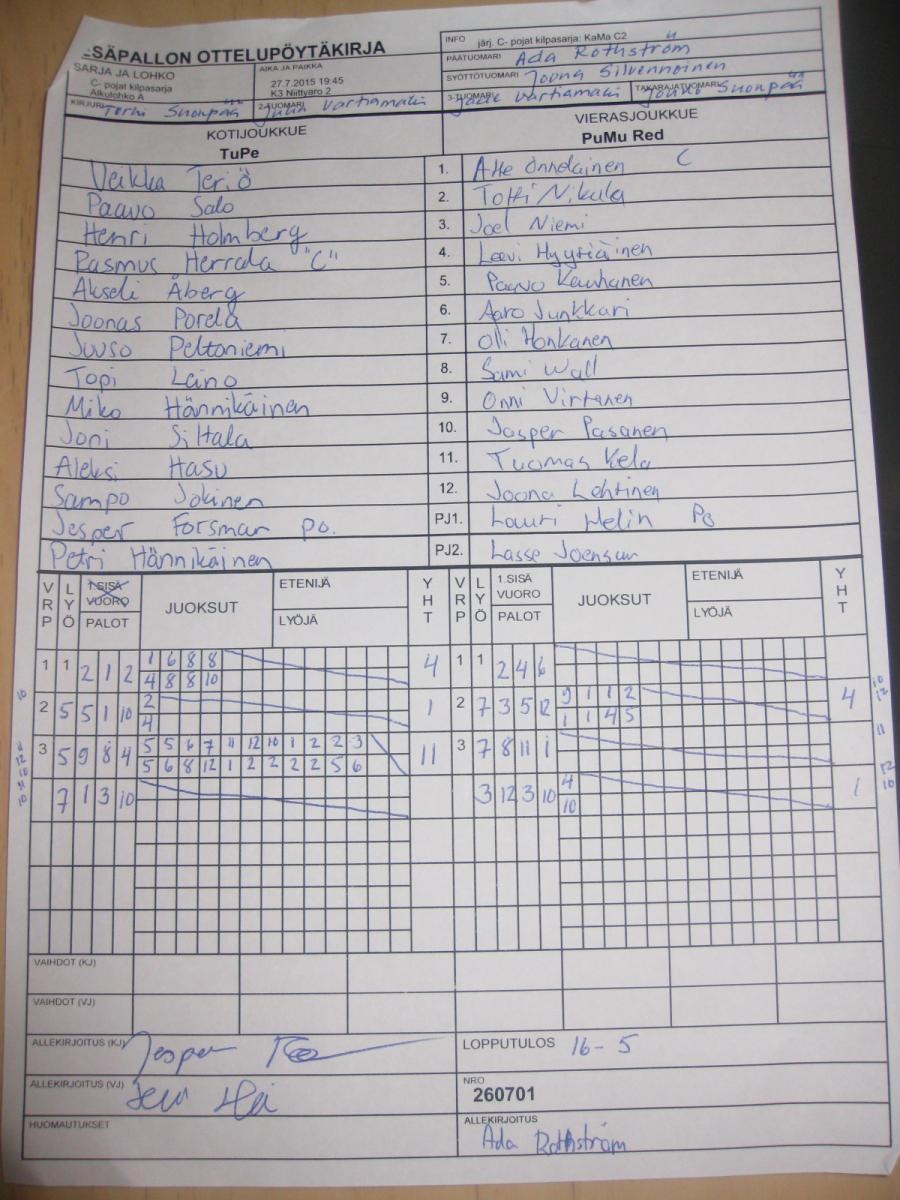 SÄPALLON OTTELUPÖYTÄKIRJA
INFO järj. C- pojat kilpasarja: KaMa C2
PÄÄTUOMARI Ada Rothström
SARJA JA LOHKO
C- pojat kilpasarja
Alkulohko A
AIKA JA PAIKKA
27.7.2015 19:45
K3 Niittyaro 2
SYÖTTÖTUOMARI Joona Silvennoinen
KIRJURI Terhi Suonpää
2-TUOMARI Juha Vartiamäki
3-TUOMARI Vartiamäki
TAKARAJATUOMARI Jouko Suonpää
KOTIJOUKKUE
TuPe
VIERASJOUKKUE
PuMu Red
Veikka Teriö 1. Atte Onnelainen C
Paavo Salo 2. Totti Nikula
Henri Holmberg 3. Joel Niemi
Rasmus Herrala "C" 4. Leevi Hyytiäinen
Akseli Åberg 5. Paavo Kauhanen
Joonas Porela 6. Aaro Junkkari
Juuso Peltoniemi 7. Olli Honkanen
Topi Laino 8. Sami Wall
Miko Hännikäinen 9. Onni Virtanen
Joni Siltala 10. Jasper Pasanen
Aleksi Hasu 11. Tuomas Kela
Sampo Jokinen 12. Joona Lehtinen
Jesper Forsman po. PJ1. Lauri Helin Po
Petri Hännikäinen PJ2. Lasse Joensuu
VRP LYÖ 1.SISÄ VUORO PALOT JUOKSUT ETENIJÄ LYÖJÄ YHT VRP LYÖ 1.SISÄ VUORO PALOT JUOKSUT ETENIJÄ LYÖJÄ YHT
1 1 2 1 2 1 6 8 8 4 1 1 2 4 6
4 8 8 10
2 5 5 1 10 2 1 2 7 3 5 12 9 1 1 2 4
4 1 1 4 5
3 5 9 8 4 5 5 6 7 11 12 10 1 2 2 3 11 3 7 8 11 1
5 6 8 12 1 2 2 2 2 5 6
7 1 3 10 3 12 3 10 4 1
10
VAIHDOT (KJ)
VAIHDOT (VJ)
ALLEKIRJOITUS (KJ) Jesper
LOPPUTULOS 16-5
ALLEKIRJOITUS (VJ)
NRO
260701
HUOMAUTUKSET
ALLEKIRJOITUS
Ada Rothström